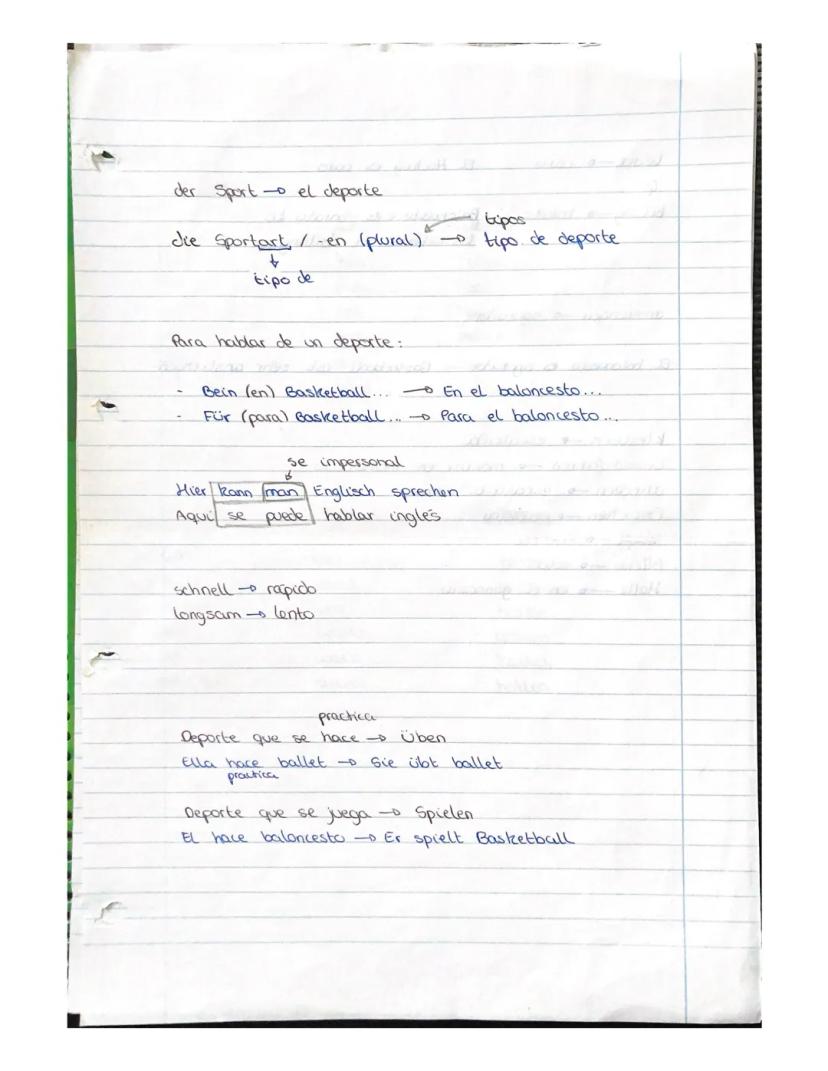 der Sport → el deporte
tipos
die Sportart / -en (plural) → tipo de deporte
↓
tipo de
Para hablar de un deporte:
- Bein (en) Basketball... → En el baloncesto...
- Für (para) Basketball... → Para el baloncesto...
se impersonal
Hier kann man Englisch sprechen
Aquí se puede hablar inglés
schnell → rápido
longsam → lento
practica
Deporte que se hace → Üben
Ella hace ballet → Sie übt ballet
practica
Deporte que se juega → Spielen
El hace baloncesto → Er spielt Basketball